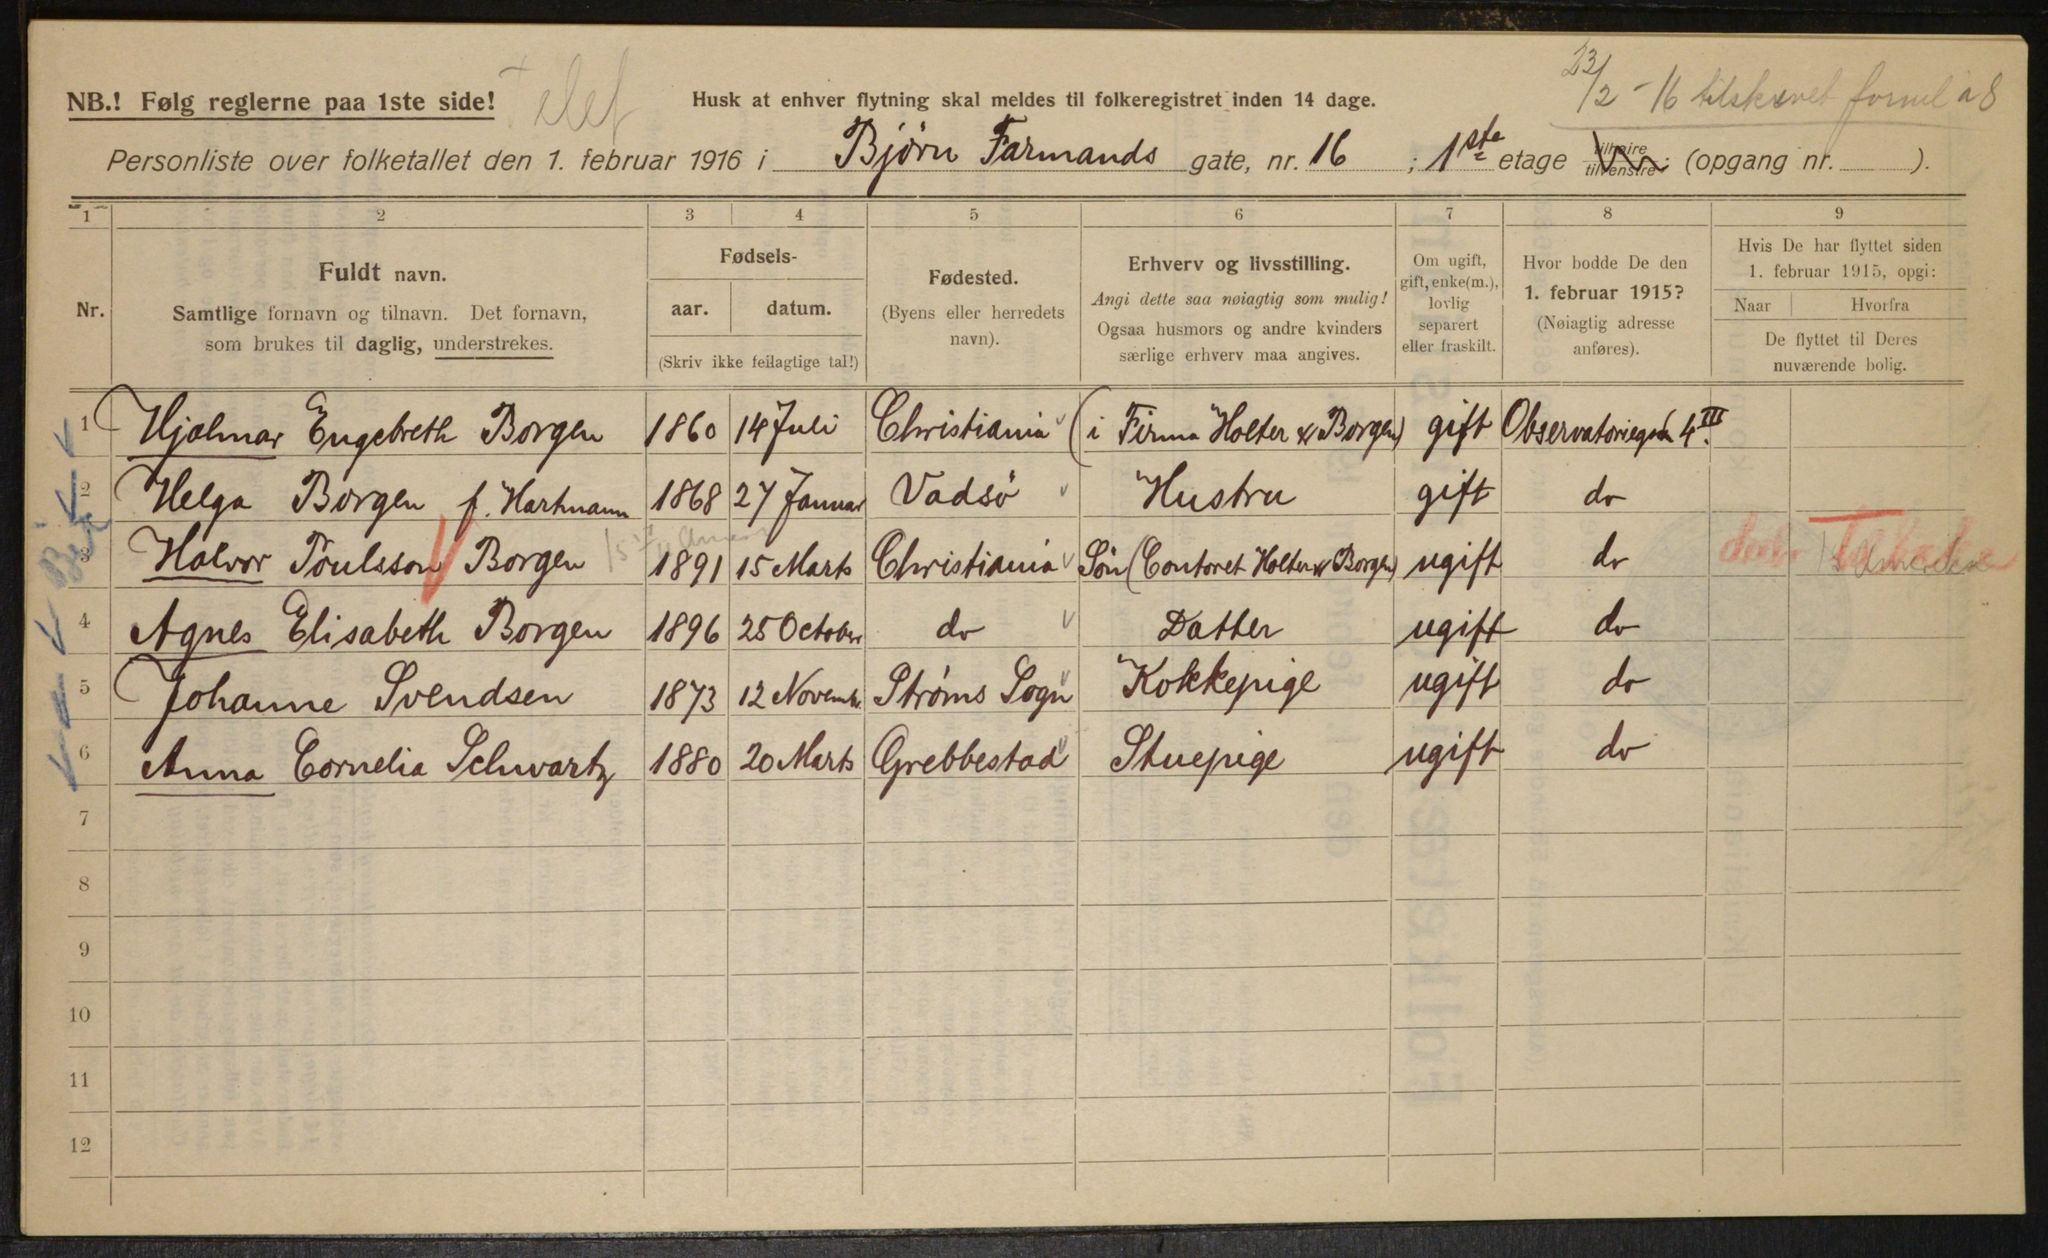 23/2 - 16 tilskrevet
NB.! Følg reglerne paa 1ste side! Husk at enhver flytning skal meldes til folkeregistret inden 14 dage.
Personliste over folketallet den 1. februar 1916 i Bjørn Farmands gate, nr. 16 ; 1ste etage tilhøire tilvenstre: (opgang nr. ).
1 2 3 4 5 6 7 8 9
Nr.
Fuldt navn.
Samtlige fornavn og tilnavn. Det fornavn,
som brukes til daglig, understrekes.
Fødsels-
aar. datum.
(Skriv ikke feilagtige tal!)
Fødested.
(Byens eller herredets
navn).
Erhverv og livsstilling.
Angi dette saa nøiagtig som mulig!
Ogsaa husmors og andre kvinders
særlige erhverv maa angives.
Om ugift,
gift, enke(m.),
lovlig
separert
eller fraskilt.
Hvor bodde De den
1. februar 1915?
(Nøiagtig adresse
anføres).
Hvis De har flyttet siden
1. februar 1915, opgi:
Naar Hvorfra
De flyttet til Deres
nuværende bolig.
1 Hjalmar Engebreth Borgen 1860 14 Juli Christiania (i Firma Holter & Borgen) gift Observatoriegdn 4 III.
2 Helga Borgen f. Hartmann 1868 27 Januar Vadsö Hustru gift do
3 Halvor Poulsson Borgen 1891 15 Marts Christiania Sön (Contoret Holter & Borgen) ugift do
4 Agnes Elisabeth Borgen 1896 25 October do Datter ugift do
5 Johanne Svendsen 1873 12 Novembr. Strøms Sogn Kokkepige ugift do
6 Anna Cornelia Schwartz 1880 20 Marts Grebbestad Stuepige ugift do
7
8
9
10
11
12